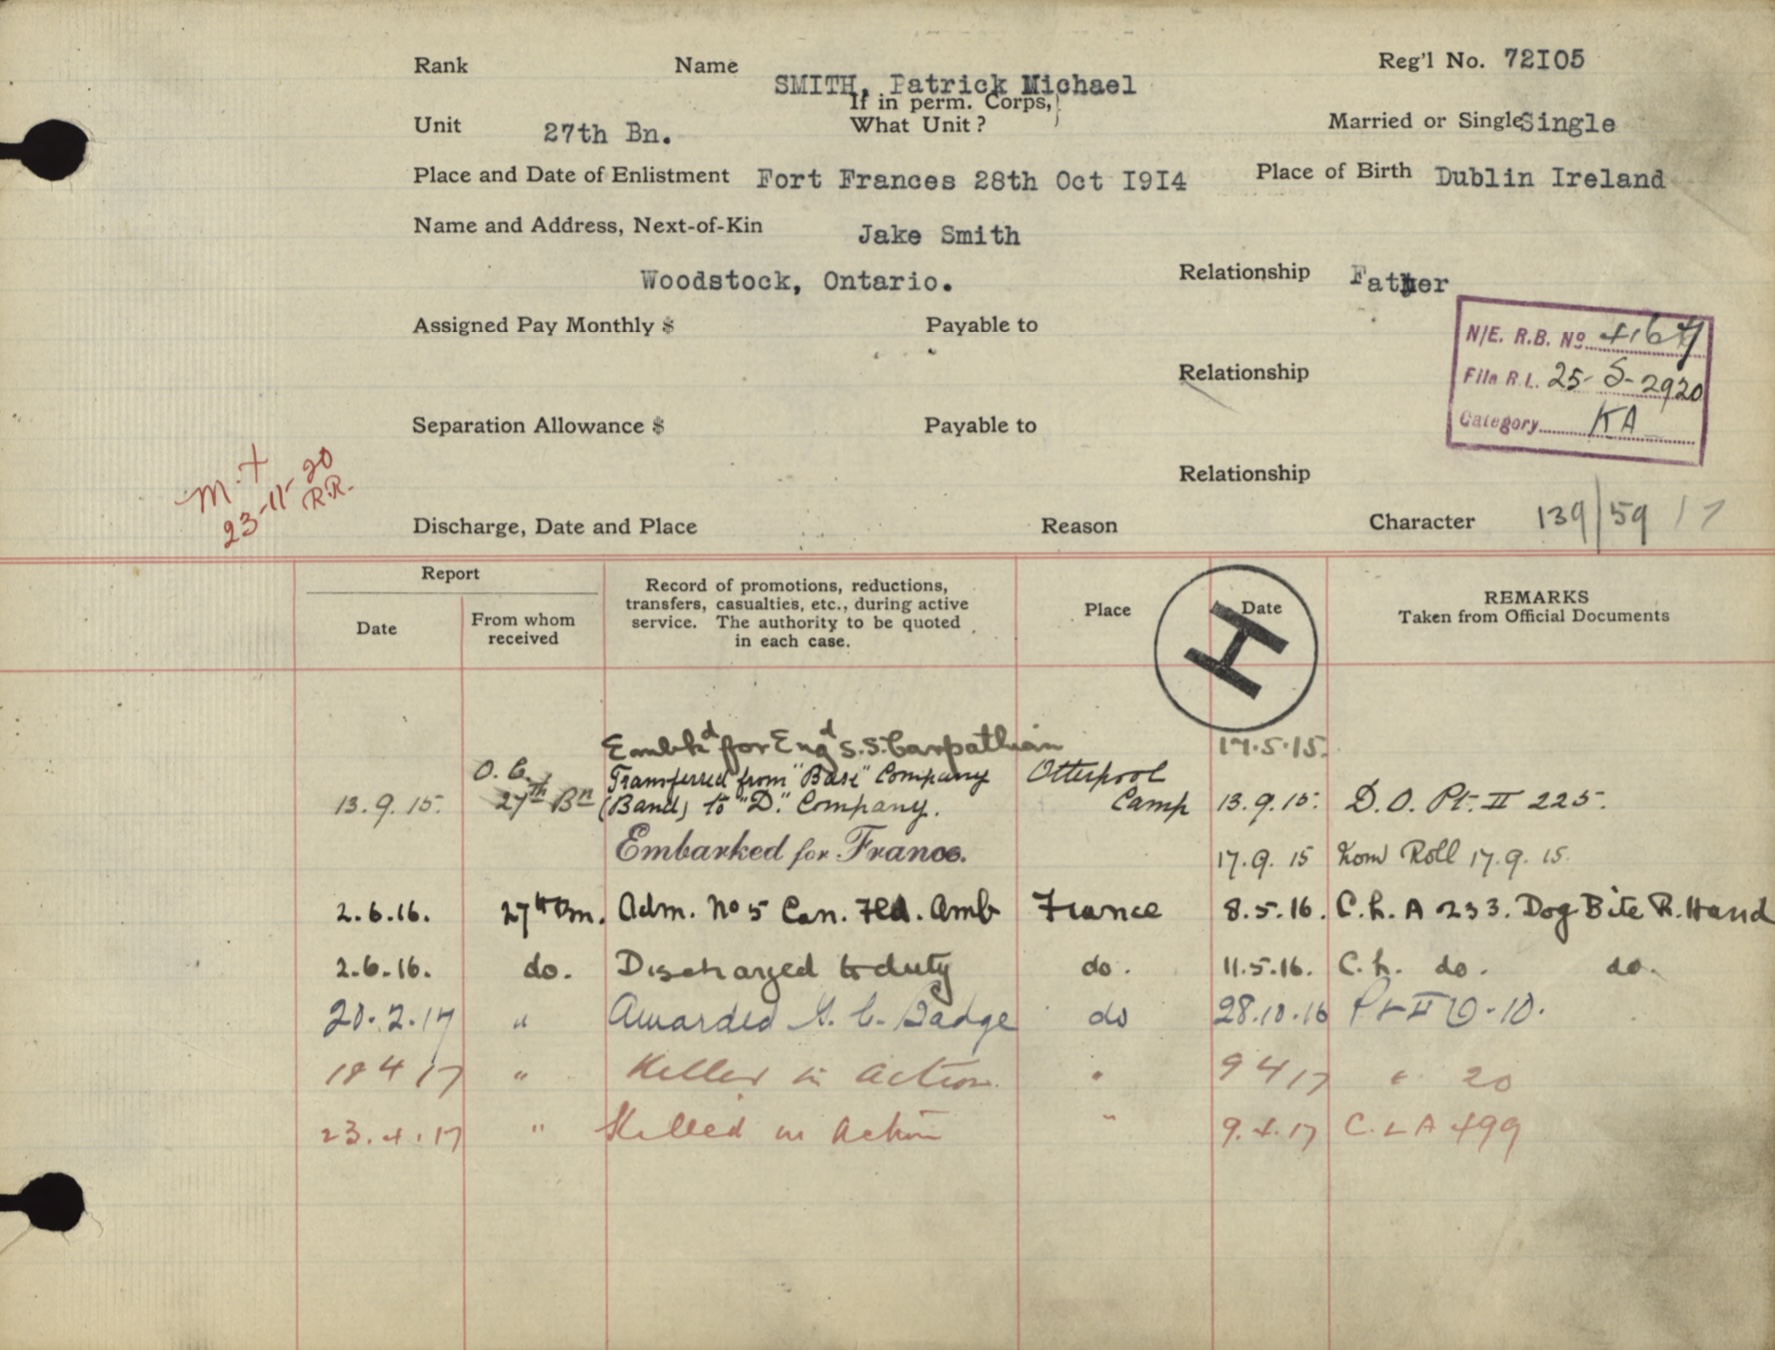 Rank Name SMITH, Patrick Michael Reg'l No. 72I05
If in perm. Corps,
What Unit ?
Unit 27th Bn. Married or Single Single
Place and Date of Enlistment Fort Frances 28th Oct I9I4 Place of Birth Dublin Ireland
Name and Address, Next-of-Kin Jake Smith
Woodstock, Ontario. Relationship Father
Assigned Pay Monthly $ Payable to
N/E. R.B. No
File R.L. 25-S-2920
Category KA
Relationship
Separation Allowance $ Payable to
Relationship
23-11-20
R.R.
Discharge, Date and Place Reason Character 139/59
Report
Date
From whom
received
Record of promotions, reductions,
transfers, casualties, etc., during active
service. The authority to be quoted
in each case.
Place
H
Date
REMARKS
Taken from Official Documents
Embkd for Engd S.S. Carpathian 17.5.15.
O.C. Transferred from "Base" Company Otterpool
13.9.15. 27th Bn (Band) to "D." Company. Camp 13.9.15. D.O. Pt. II 225.
Embarked for France. 17.9.15 Nom Roll 17.9.15.
2.6.16. 27th Bn. Adm. No 5 Can. Fld. Amb France 8.5.16. C.L. A 233. Dog Bite R. Hand
2.6.16. do. Discharged to duty do. 11.5.16. C.L. do. do.
20.2.17 " Awarded G.C. Badge do 28.10.16 Pt II O. 10.
18 4 17 " Killed in action " 9 4 17 " 20
23.4.17 " Killed in Action " 9.4.17 C.L A 499